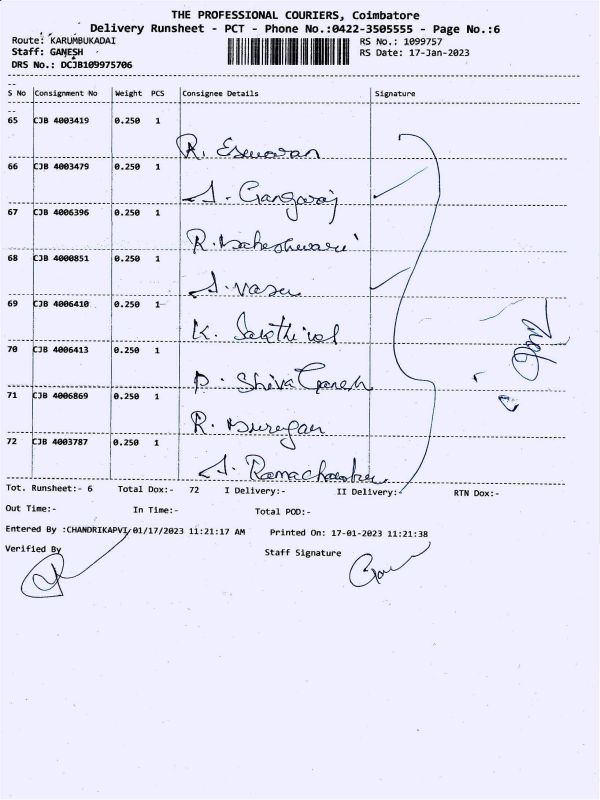 THE PROFESSIONAL COURIERS, Coimbatore
Delivery Runsheet - PCT - Phone No.:0422-3505555 - Page No.:6
Route: KARUMBUKADAI RS No.: 1099757
Staff: GANESH RS Date: 17-Jan-2023
DRS No.: DCJB109975706
S No Consignment No Weight PCS Consignee Details Signature
65 CJB 4003419 0.250 1
R. Eswaran
66 CJB 4003479 0.250 1
S. Gangaraj
67 CJB 4006396 0.250 1
R. Maheshwari
68 CJB 4000851 0.250 1
S. Vasu
69 CJB 4006410 0.250 1
K. Sakthivel
70 CJB 4006413 0.250 1
P. Shiva Ganesh
71 CJB 4006869 0.250 1
R. Murugan
72 CJB 4003787 0.250 1
S. Ramachandran
Tot. Runsheet:- 6 Total Dox:- 72 I Delivery:- II Delivery:- RTN Dox:-
Out Time:- In Time:- Total POD:-
Entered By :CHANDRIKAPVI/01/17/2023 11:21:17 AM Printed On: 17-01-2023 11:21:38
Verified By Staff Signature